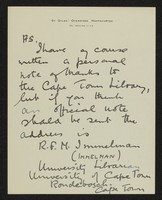 P.S.
I have of course
written a personal
note of thanks to
the Cape Town Library,
but if you think
an official note
should be sent the
address is
R.F.M. Immelman
(IMMELMAN)
University Librarian
University of Cape Town
Rondebosch.
Cape Town